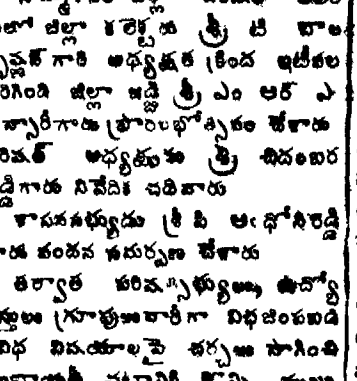 లో జిల్లా కలెక్టరు శ్రీ టి బాల
గారి అధ్యక్షత క్రింద ఇటీవల
రిగింది జిల్లా జడ్జి శ్రీ ఎం ఆర్ ఎ
న్సారీగారు ప్రారంభోత్సవం చేశారు
అధ్యక్షుడు శ్రీ చిదంబర
డ్డిగారు నివేదిక చదివారు
శాసనసభ్యుడు శ్రీ పి
రు వందన సమర్పణ చేశారు
తర్వాత ఉద్యో
స్తులు గ్రూపులవారీగా విభజింపబడి
విధ విషయాలపై చర్చలు సాగించి